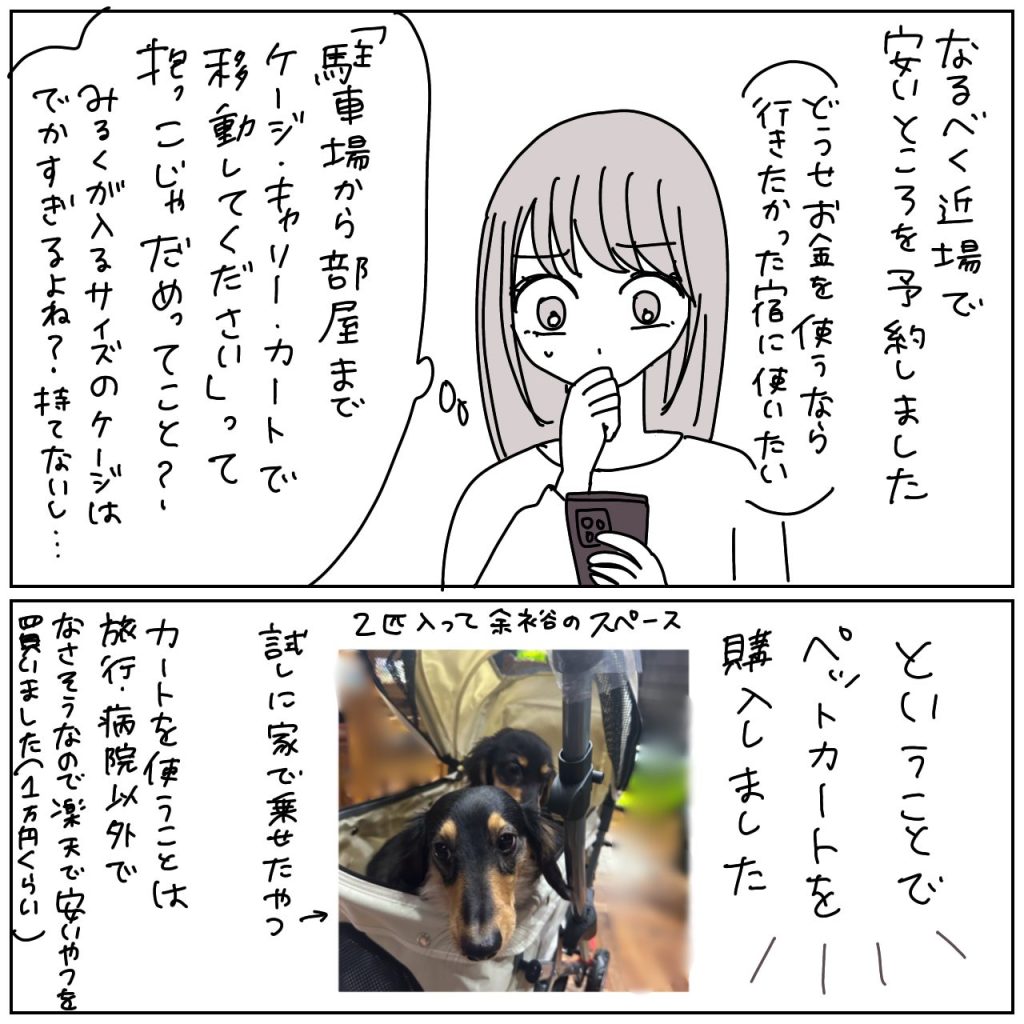 なるべく近場で
安いところを予約しました
(どうせお金を使うなら
行きたかった宿に使いたい)
「駐車場から部屋まで
ケージ・キャリー・カートで
移動してください」って
抱っこじゃだめってこと?
みるくが入るサイズのケージは
でかすぎるよね?持てないし…
ということで
ペットカートを
購入しました
2匹入って余裕のスペース
試しに家で乗せたやつ→
カートを使うことは
旅行・病院以外で
なさそうなので楽天で安いやつを
買いました(1万円くらい)